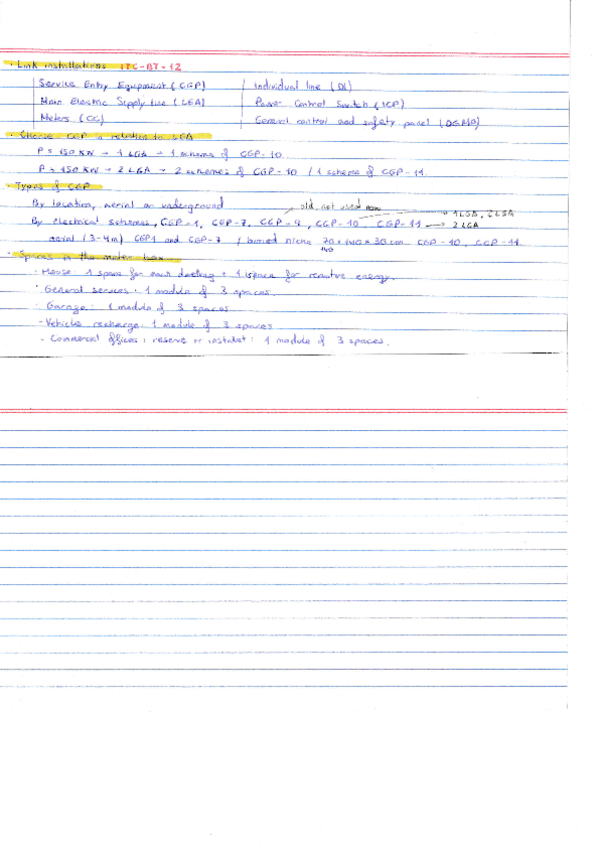 · Link installations ITC-BT-12
Service Entry Equipment (CGP) Individual line (DI)
Main Electric Supply Line (LGA) Power Control Switch (ICP)
Meters (CC) General control and safety panel (DGMP)
· Choose CGP in relation to LGA
P = 150 KW → 1 LGA → 1 scheme of CGP-10
P > 150 KW → 2 LGA → 2 schemes of CGP-10 / 1 scheme of CGP-11
· Types of CGP
By location, aerial or underground old, not used now 1 LGA, 2 LGA
By electrical schemes, CGP-1, CGP-7, CGP-9, CGP-10 CGP-11 → 2 LGA
aerial (3-4m) CGP1 and CGP-7 / buried niche 70 x 140 x 30 cm CGP-10, CGP-11
· Spaces in the meter box
· House: 1 space for each dwelling + 1 space for reactive energy.
· General services: 1 module of 3 spaces.
· Garage: 1 module of 3 spaces
- Vehicles recharge: 1 module of 3 spaces
- Commercial offices: reserve or install: 1 module of 3 spaces.